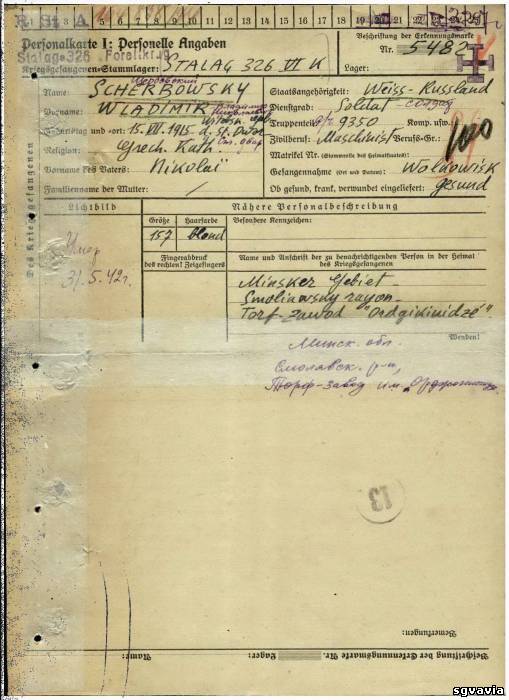 R. St. A.
1 2 3 4 5 6 7 8 9 10 11 12 13 14 15 16 17 18 19 20 21 22 23 24 25
Personalkarte I: Personelle Angaben
Stalag 326 Forellkrug
Kriegsgefangenen-Stammlager: STALAG 326 VI K
Beschriftung der Erkennungsmarke
Nr. 5482
Lager:
Des Kriegsgefangenen
Name: SCHERBOWSKY
Vorname: WLADIMIR
Geburtstag und -ort: 15.VII.1915
Religion: Grech. Kath.
Vorname des Vaters: Nikolaï
Familienname der Mutter: /
Staatsangehörigkeit: Weiss-Russland
Dienstgrad: Soldat - солдат
Truppenteil: 9350 Komp. usw.:
Zivilberuf: Maschinist Berufs-Gr.:
Matrikel Nr. (Stammrolle des Heimatstaates):
Gefangennahme (Ort und Datum): Wolkowisk
Ob gesund, krank, verwundet eingeliefert: gesund
Lichtbild
Nähere Personalbeschreibung
Größe Haarfarbe Besondere Kennzeichen:
157 blond
Умер
31.5.42г.
Fingerabdruck
des rechten! Zeigefingers
Name und Anschrift der zu benachrichtigenden Person in der Heimat
des Kriegsgefangenen
Minsker Gebiet-
Smoliawsky rayon-
Torf-Zawod "Ordgikinidzé".
Wenden!
Минск. обл.
Смолавск. р-н,
Торф-завод им.
13
Bemerkungen:
Name:
Beschriftung der Erkennungsmarke Nr.
Lager:
sgvavia